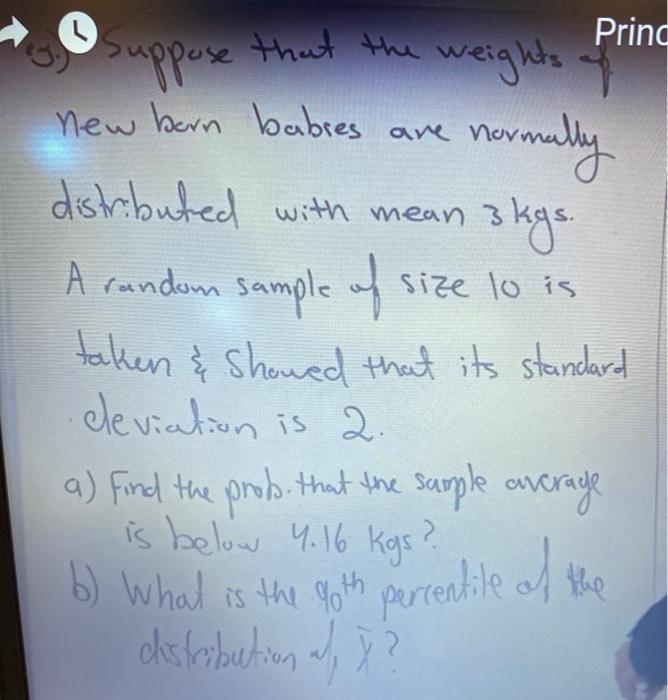 Princ
eg.) Suppose that the weights of
new born babies are normally
distributed with mean 3 kgs.
A random sample of size 10 is
taken & Showed that its standard
deviation is 2.
a) Find the prob. that the sample average
is below 4.16 kgs?
b) What is the 90th percentile of the
distribution of, X̄?